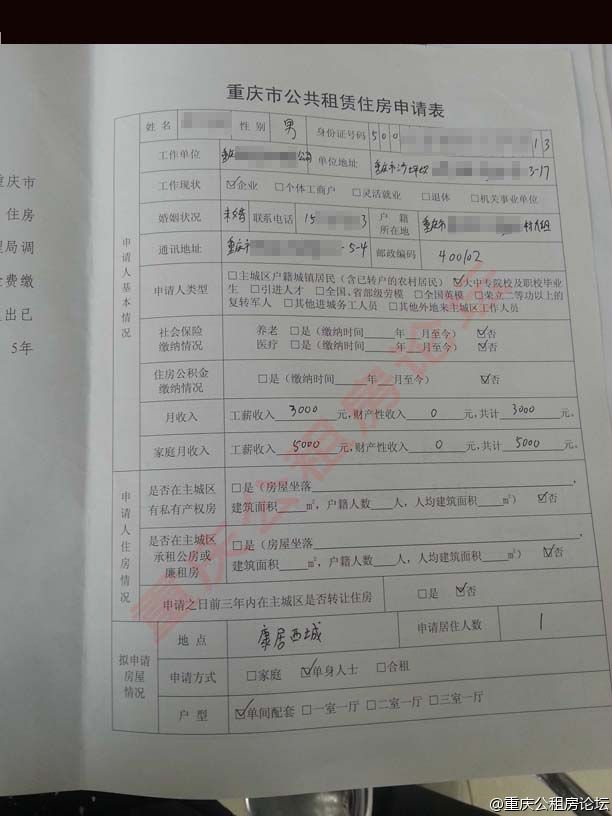 重庆市公共租赁住房申请表
姓名 性别 男 身份证号码 500 13
工作单位 单位地址 3-17
工作现状 ☑企业 □个体工商户 □灵活就业 □退休 □机关事业单位
婚姻状况 未婚 联系电话 15 3 户籍所在地 重庆市
通讯地址 重庆市 -5-4 邮政编码 400102
申请人基本情况
申请人类型 □主城区户籍城镇居民(含已转户的农村居民) ☑大中专院校及职校毕业
生 □引进人才 □全国、省部级劳模 □全国英模 □荣立二等功以上的
复转军人 □其他进城务工人员 □其他外地来主城区工作人员
社会保险缴纳情况 养老 □是(缴纳时间 年 月至今) ☑否
医疗 □是(缴纳时间 年 月至今) ☑否
住房公积金缴纳情况 □是(缴纳时间 年 月至今) ☑否
月收入 工薪收入 3000 元,财产性收入 0 元,共计 3000 元。
家庭月收入 工薪收入 5000 元,财产性收入 0 元,共计 5000 元。
申请人住房情况
是否在主城区有私有产权房 □是(房屋坐落 ,
建筑面积 m²,户籍人数 人,人均建筑面积 m²) ☑否
是否在主城区承租公房或廉租房 □是(房屋坐落 ,
建筑面积 m²,户籍人数 人,人均建筑面积 m²) ☑否
申请之日前三年内在主城区是否转让住房 □是 ☑否
拟申请房屋情况
地点 康居西城 申请居住人数 1
申请方式 □家庭 ☑单身人士 □合租
户型 ☑单间配套 □一室一厅 □二室一厅 □三室一厅
重庆市
住房
局调
费缴
出已
5年
重庆公租房论坛
@重庆公租房论坛